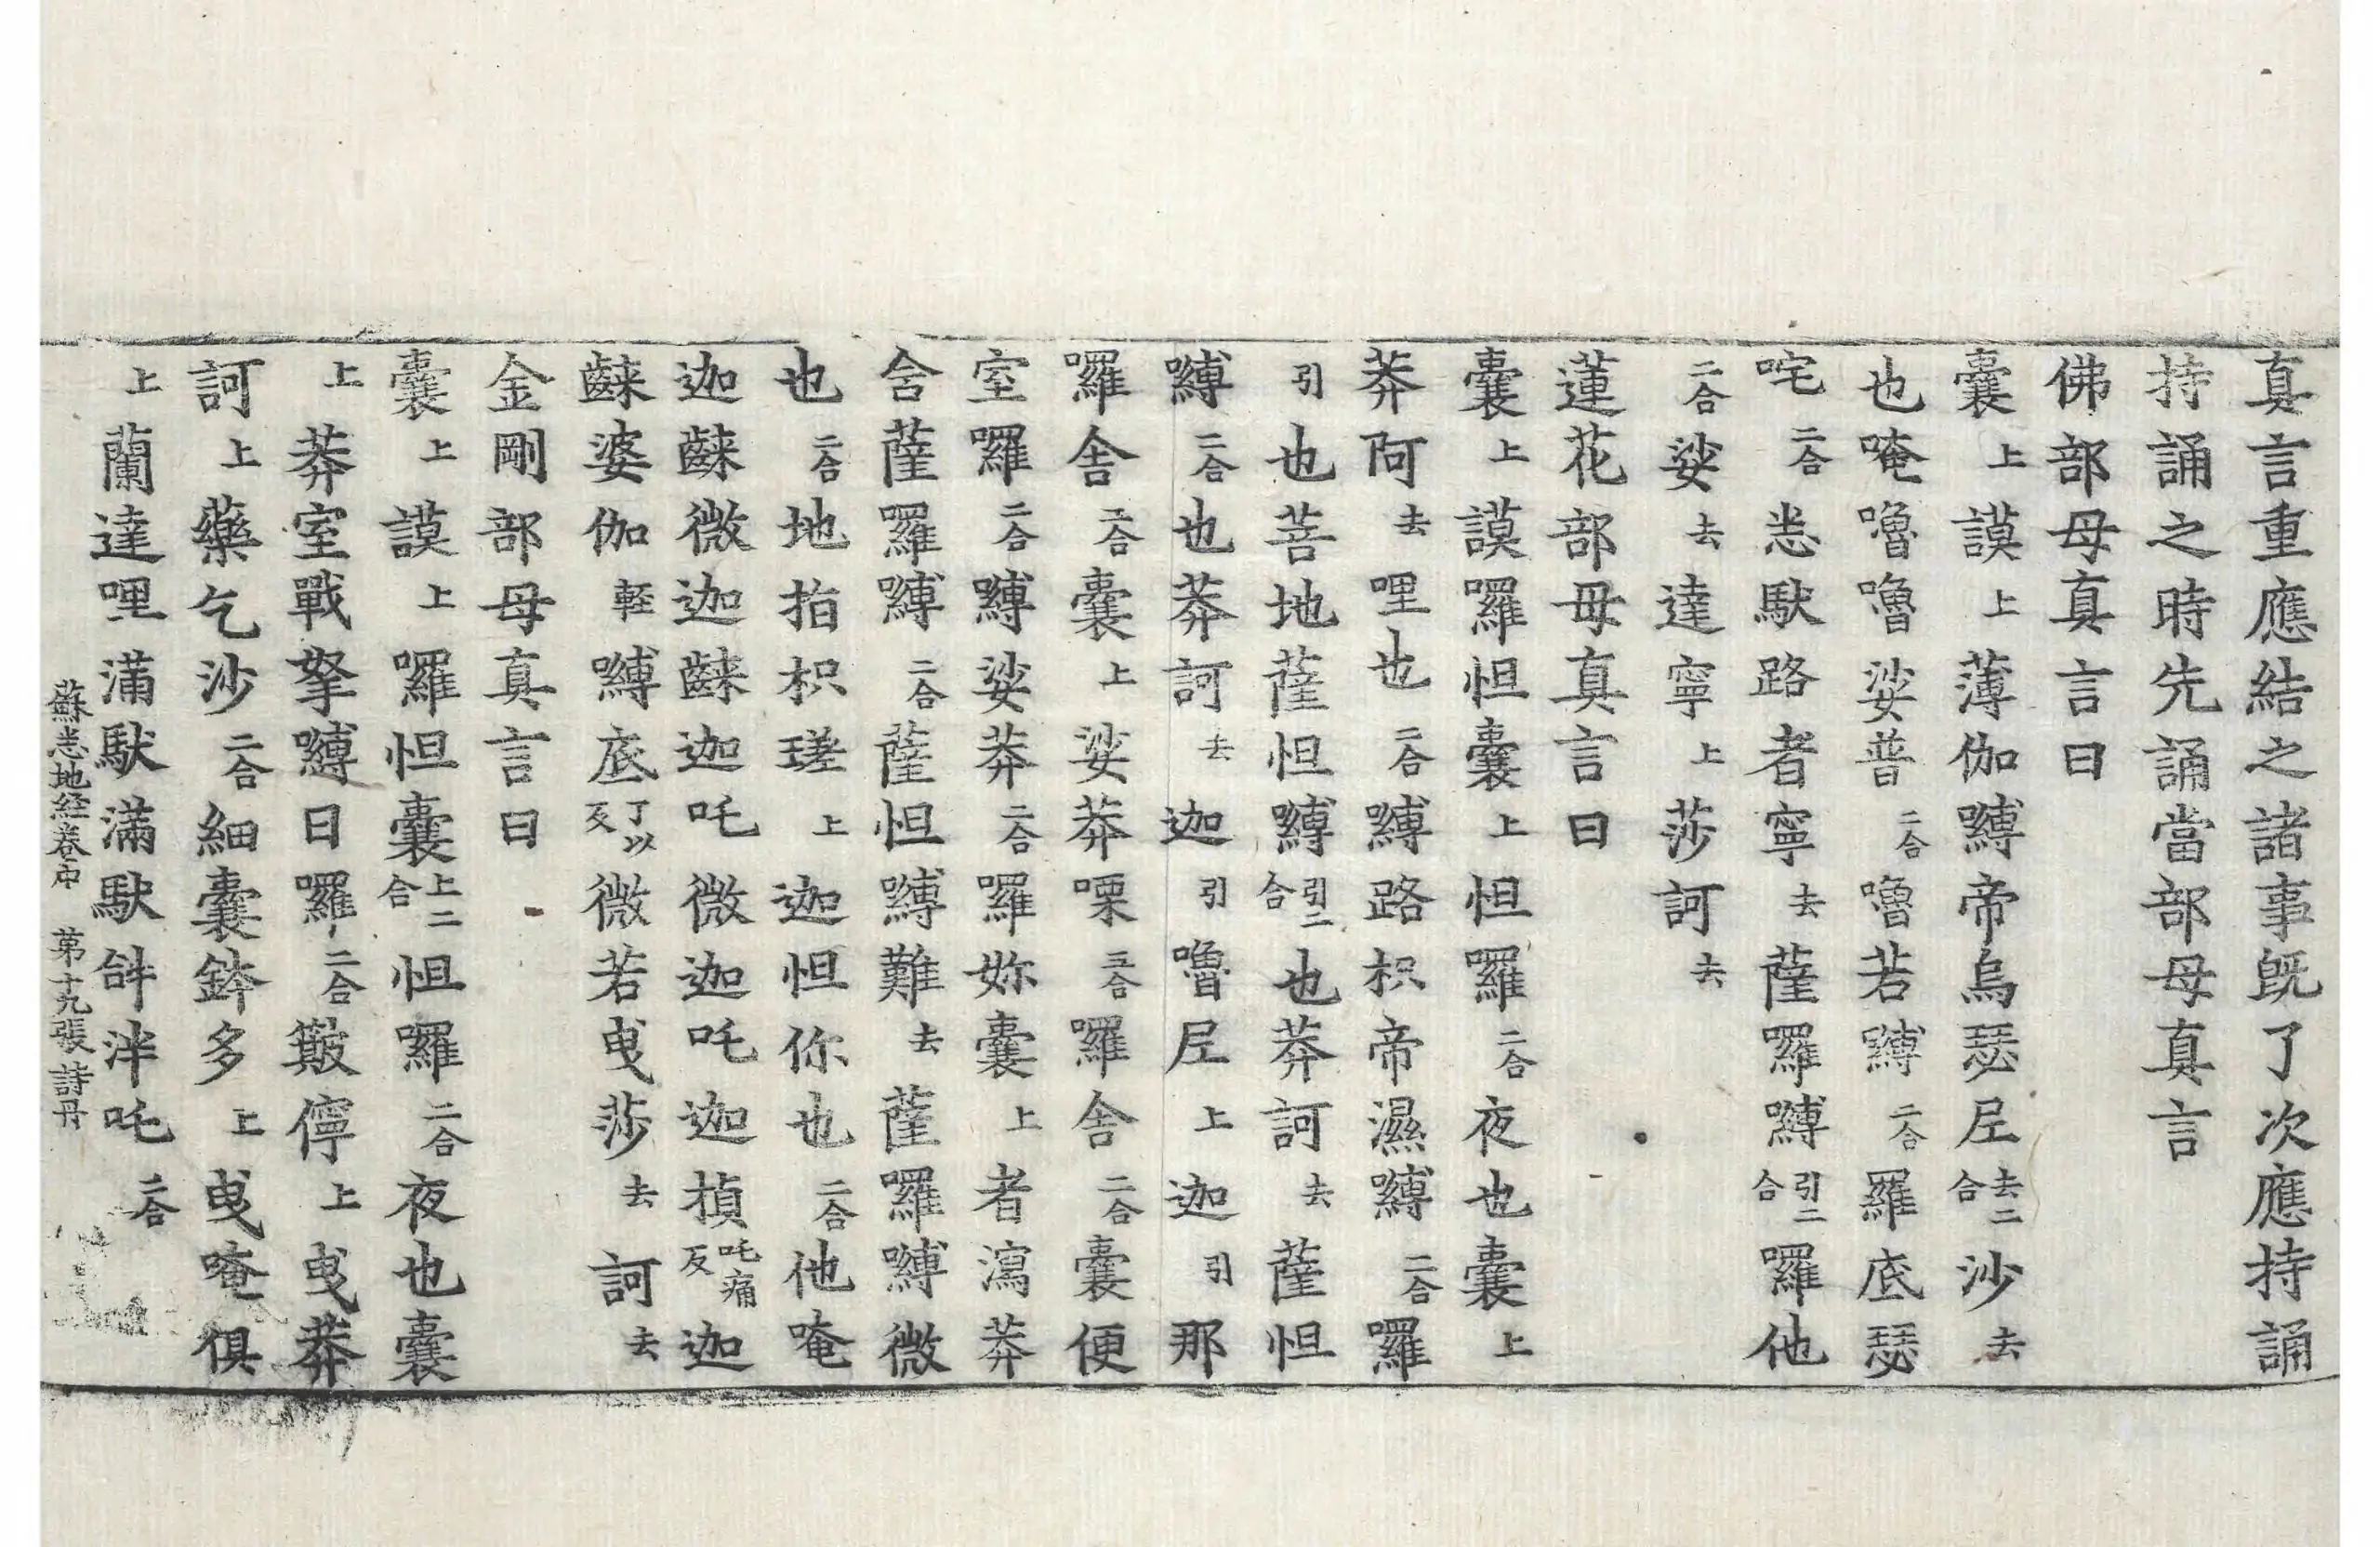 真言重應結之諸事既了次應持誦
持誦之時先誦當部母真言
佛部母真言曰
曩上謨上薄伽嚩帝烏瑟尼去二合沙去
也唵嚕嚕娑普二合嚕若嚩二合羅底瑟
咤二合悉馱路者寧去薩囉嚩引二合囉他
二合娑去達寧上莎訶去
蓮花部母真言曰
曩上謨囉怛曩上怛羅二合夜也曩上
莽阿去哩也二合嚩路枳帝濕嚩二合羅
引也菩地薩怛嚩引二合也莽訶去薩怛
嚩二合也莽訶去迦引嚕尼上迦引那
囉舍二合曩上娑莽㗚三合羅舍二合曩便
室囉二合嚩娑莽二合羅妳曩上者瀉莽
舍薩羅嚩二合薩怛嚩難去薩羅嚩微
也二合地指枳瑳上迦怛你也二合他唵
迦𪘨微迦𪘨迦吒微迦吒迦楨吒痛反迦
𪘨婆伽輕嚩底丁以反微若曳莎去訶去
金剛部母真言曰
曩上謨上羅怛曩上二合怛羅二合夜也曩
上莽室戰拏嚩日羅二合簸儜上曳莽
訶上藥乞沙二合細曩鉢多上曳唵俱
上蘭達哩滿馱滿馱𤙖泮吒二合
蘇悉地経卷中 第十九張 詩丹